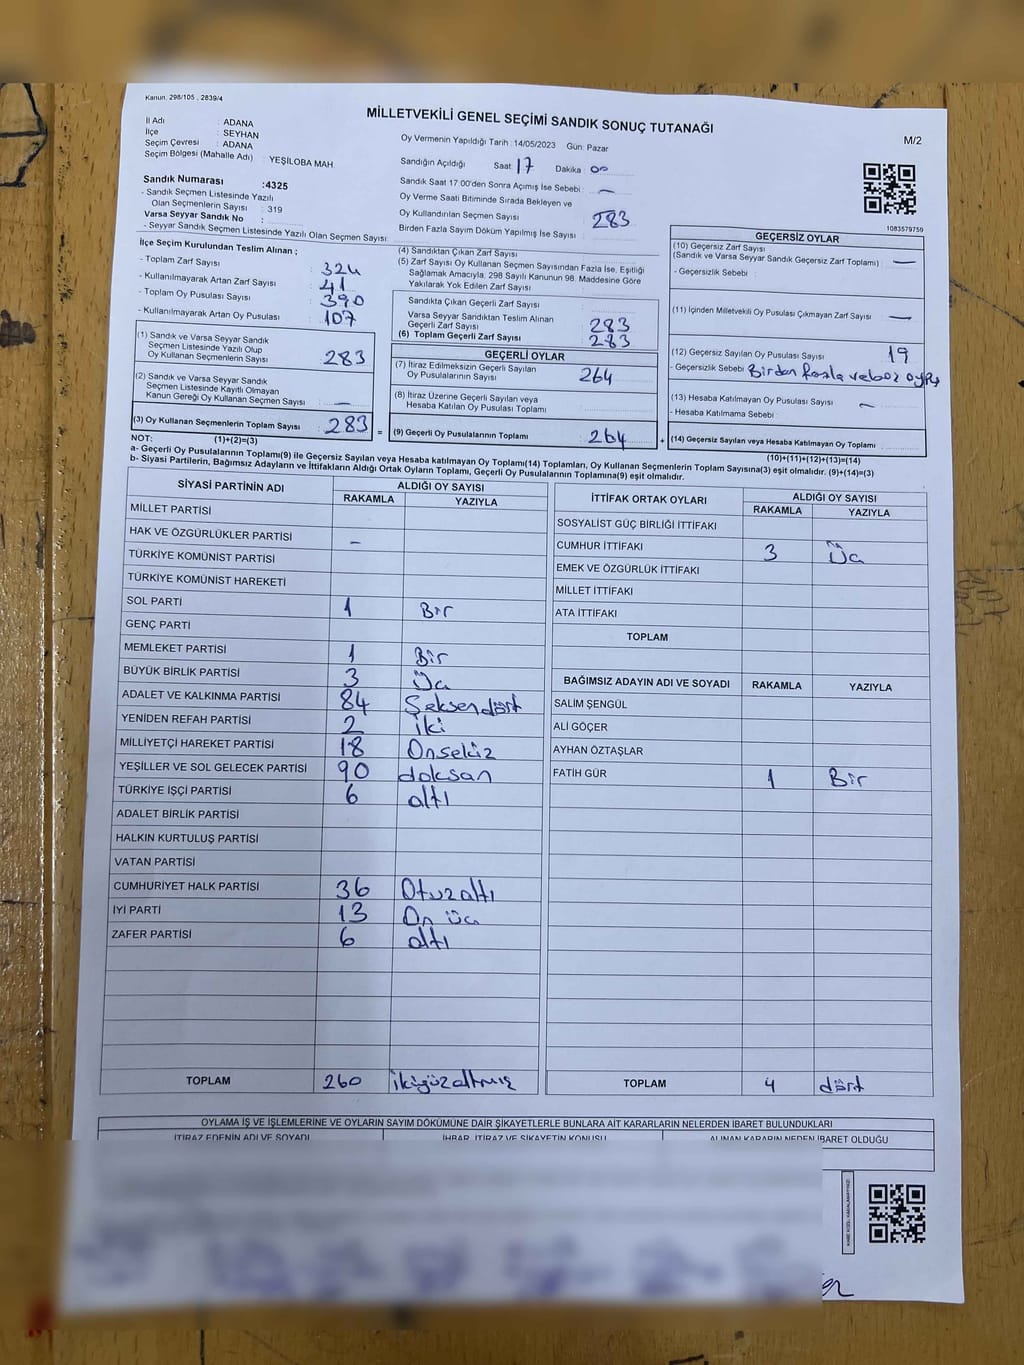 Kanun, 298/105 , 2839/4
MİLLETVEKİLİ GENEL SEÇİMİ SANDIK SONUÇ TUTANAĞI
M/2
İl Adı : ADANA
İlçe : SEYHAN
Seçim Çevresi : ADANA
Seçim Bölgesi (Mahalle Adı) : YEŞİLOBA MAH
Sandık Numarası :4325
- Sandık Seçmen Listesinde Yazılı
Olan Seçmenlerin Sayısı : 319
Varsa Seyyar Sandık No :
- Seyyar Sandık Seçmen Listesinde Yazılı Olan Seçmen Sayısı:
Oy Vermenin Yapıldığı Tarih :14/05/2023 Gün: Pazar
Sandığın Açıldığı Saat: 17 Dakika: 00
Sandık Saat 17:00'den Sonra Açımış İse Sebebi : –
Oy Verme Saati Bitiminde Sırada Bekleyen ve
Oy Kullandırılan Seçmen Sayısı : 283
Birden Fazla Sayım Döküm Yapılmış İse Sayısı :
1083579759
İlçe Seçim Kurulundan Teslim Alınan ;
- Toplam Zarf Sayısı : 324
- Kullanılmayarak Artan Zarf Sayısı : 41
- Toplam Oy Pusulası Sayısı : 390
- Kullanılmayarak Artan Oy Pusulası : 107
(1) Sandık ve Varsa Seyyar Sandık
Seçmen Listesinde Yazılı Olup
Oy Kullanan Seçmenlerin Sayısı : 283
(2) Sandık ve Varsa Seyyar Sandık
Seçmen Listesinde Kayıtlı Olmayan
Kanun Gereği Oy Kullanan Seçmen Sayısı : –
(3) Oy Kullanan Seçmenlerin Toplam Sayısı : 283 =
(1)+(2)=(3)
(4) Sandıktan Çıkan Zarf Sayısı :
(5) Zarf Sayısı Oy Kullanan Seçmen Sayısından Fazla İse, Eşitliği
Sağlamak Amacıyla, 298 Sayılı Kanunun 98. Maddesine Göre
Yakılarak Yok Edilen Zarf Sayısı :
Sandıkta Çıkan Geçerli Zarf Sayısı :
Varsa Seyyar Sandıktan Teslim Alınan
Geçerli Zarf Sayısı : 283
(6) Toplam Geçerli Zarf Sayısı : 283
GEÇERLİ OYLAR
(7) İtiraz Edilmeksizin Geçerli Sayılan
Oy Pusulalarının Sayısı : 264
(8) İtiraz Üzerine Geçerli Sayılan veya
Hesaba Katılan Oy Pusulası Toplamı :
(9) Geçerli Oy Pusulalarının Toplamı : 264 +
GEÇERSİZ OYLAR
(10) Geçersiz Zarf Sayısı
(Sandık ve Varsa Seyyar Sandık Geçersiz Zarf Toplamı) : –
- Geçersizlik Sebebi :
(11) İçinden Milletvekili Oy Pusulası Çıkmayan Zarf Sayısı : –
(12) Geçersiz Sayılan Oy Pusulası Sayısı : 19
- Geçersizlik Sebebi : Birden fazla ve boz oy
(13) Hesaba Katılmayan Oy Pusulası Sayısı : –
- Hesaba Katılmama Sebebi :
(14) Geçersiz Sayılan veya Hesaba Katılmayan Oy Pusulası Toplamı :
(10)+(11)+(12)+(13)=(14)
NOT:
a- Geçerli Oy Pusulalarının Toplamı(9) ile Geçersiz Sayılan veya Hesaba katılmayan Oy Toplamı(14) Toplamları, Oy Kullanan Seçmenlerin Toplam Sayısına(3) eşit olmalıdır. (9)+(14)=(3)
b- Siyasi Partilerin, Bağımsız Adayların ve İttifakların Aldığı Ortak Oyların Toplamı, Geçerli Oy Pusulalarının Toplamına(9) eşit olmalıdır.
SİYASİ PARTİNİN ADI ALDIĞI OY SAYISI
RAKAMLA YAZIYLA
MİLLET PARTİSİ
HAK VE ÖZGÜRLÜKLER PARTİSİ –
TÜRKİYE KOMÜNİST PARTİSİ
TÜRKİYE KOMÜNİST HAREKETİ
SOL PARTİ 1 Bir
GENÇ PARTİ
MEMLEKET PARTİSİ 1 Bir
BÜYÜK BİRLİK PARTİSİ 3 Üç
ADALET VE KALKINMA PARTİSİ 84 Seksendört
YENİDEN REFAH PARTİSİ 2 iki
MİLLİYETÇİ HAREKET PARTİSİ 18 Onsekiz
YEŞİLLER VE SOL GELECEK PARTİSİ 90 doksan
TÜRKİYE İŞÇİ PARTİSİ 6 altı
ADALET BİRLİK PARTİSİ
HALKIN KURTULUŞ PARTİSİ
VATAN PARTİSİ
CUMHURİYET HALK PARTİSİ 36 Otuzaltı
İYİ PARTİ 13 On üç
ZAFER PARTİSİ 6 altı
TOPLAM 260 ikiyüzaltmış
İTTİFAK ORTAK OYLARI ALDIĞI OY SAYISI
RAKAMLA YAZIYLA
SOSYALİST GÜÇ BİRLİĞİ İTTİFAKI
CUMHUR İTTİFAKI 3 Üç
EMEK VE ÖZGÜRLÜK İTTİFAKI
MİLLET İTTİFAKI
ATA İTTİFAKI
TOPLAM
BAĞIMSIZ ADAYIN ADI VE SOYADI RAKAMLA YAZIYLA
SALİM ŞENGÜL
ALİ GÖÇER
AYHAN ÖZTAŞLAR
FATİH GÜR 1 Bir
TOPLAM 4 dört
OYLAMA İŞ VE İŞLEMLERİNE VE OYLARIN SAYIM DÖKÜMÜNE DAİR ŞİKAYETLERLE BUNLARA AİT KARARLARIN NELERDEN İBARET BULUNDUKLARI
İTİRAZ EDENİN ADI VE SOYADI İHBAR, İTİRAZ VE ŞİKAYETİN KONUSU ALINAN KARARIN NEDEN İBARET OLDUĞU